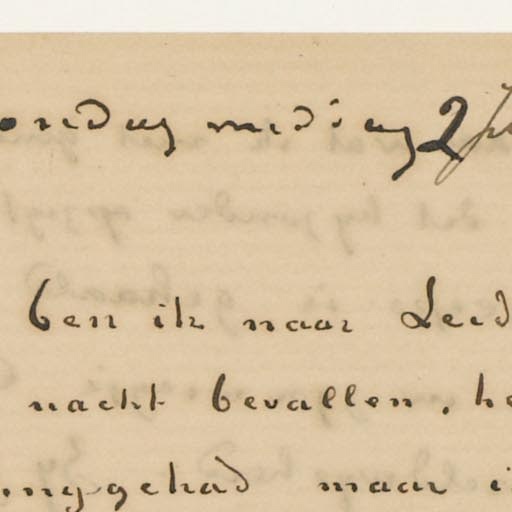 ondag middag 2
ben ik naar Leid
nacht bevallen, he
ng gehad maar i